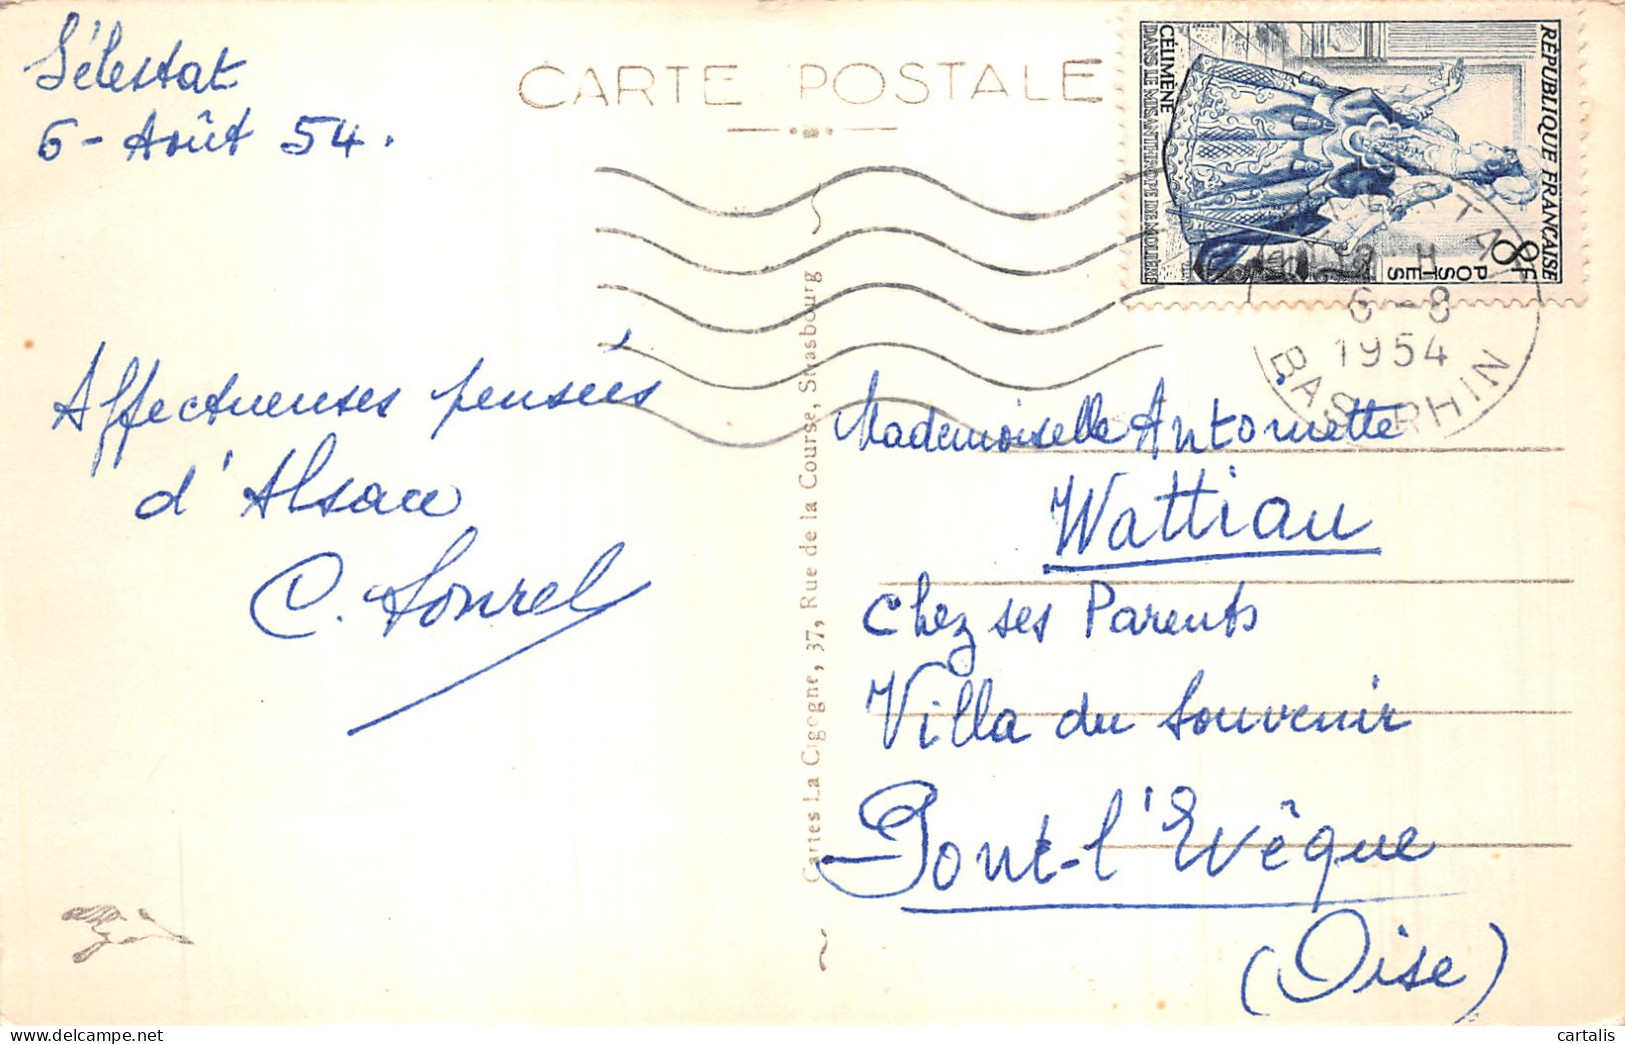 Sélestat
6 - Août 54.
CARTE POSTALE
Affectueuses pensées
d'Alsace
C. Sonrel
Cartes La Cigogne, 37, Rue de la Course, Strasbourg
RÉPUBLIQUE FRANÇAISE
8F
POSTES
CÉLIMÈNE
DANS LE MISANTHROPE DE MOLIÈRE
6 - 8
1954
BAS-RHIN
Mademoiselle Antoinette
Wattiau
Chez ses Parents
Villa du Souvenir
Pont-l'Evêque
(Oise)
cartalis